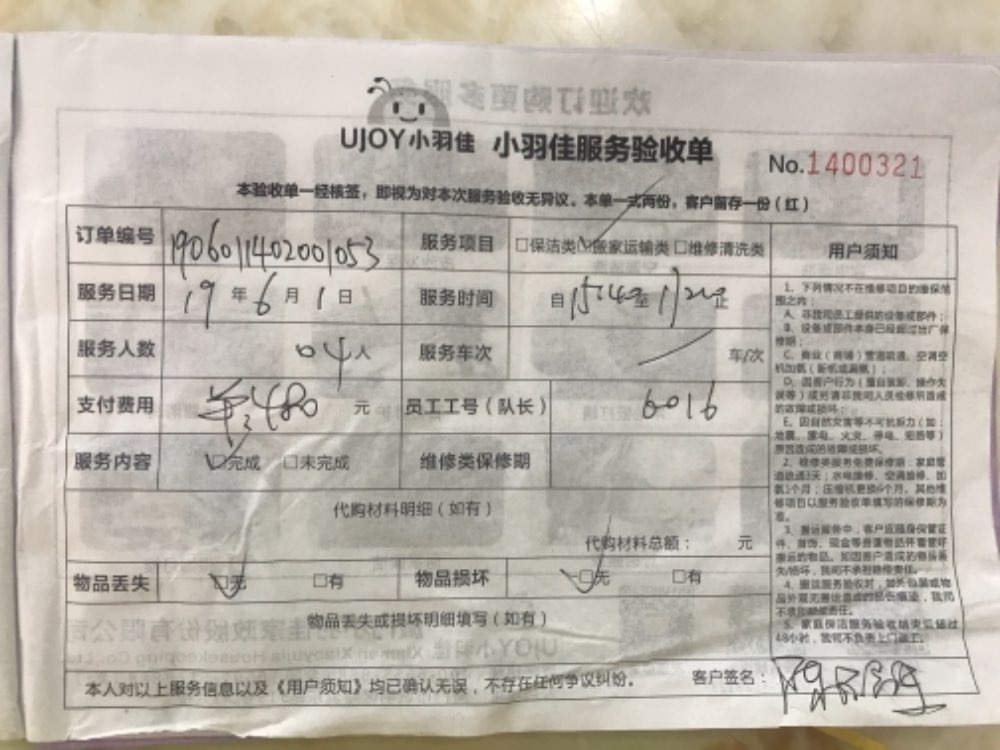 欢迎订购更多服务
UJOY小羽佳 小羽佳服务验收单
No.1400321
本验收单一经核签，即视为对本次服务验收无异议。本单一式两份，客户留存一份（红）
订单编号 1906011402001053 服务项目 □保洁类 □搬家运输类 □维修清洗类 用户须知
服务日期 19 年 6 月 1 日 服务时间 自 至 止
服务人数 04 人 服务车次 车/次
支付费用 480 元 员工工号（队长） 6016
服务内容 □完成 □未完成 维修类保修期
代购材料明细（如有）
代购材料总额： 元
物品丢失 □无 □有 物品损坏 □无 □有
物品丢失或损坏明细填写（如有）
本人对以上服务信息以及《用户须知》均已确认无误，不存在任何争议纠纷。 客户签名：
1、下列情况不在维修项目的维保范
围之内：
A、非我司员工提供的设备或部件；
B、设备或部件本身已经超过出厂保
修期；
C、商业（商铺）管道疏通、空调空
D、因客户行为（擅自装卸、操作失
误等）或另请非我司人员检修所造成
的故障或损坏；
E、因自然灾害等不可抗拒力（如：
地震、雷电、火灾、停电、
原因造成的故障或损坏。
2、维修类服务免费保修期：家庭管
道疏通3天；水电维修、空调维修、加
氨1个月；压缩机更换6个月，其他维
修项目以服务验收单填写的保修期为
准。
3、搬运服务中，客户应随身保管证
件、首饰、现金等贵重物品并看管好
搬运的物品。如因客户造成的物品丢
失/损坏，我司不承担赔偿责任。
4、搬运服务验收时，如外包装或物
品外观无搬运造成的损伤痕迹，我司
不承担赔偿责任。
5、家庭保洁服务验收结束后超过
48小时，我司不负责上门返工。